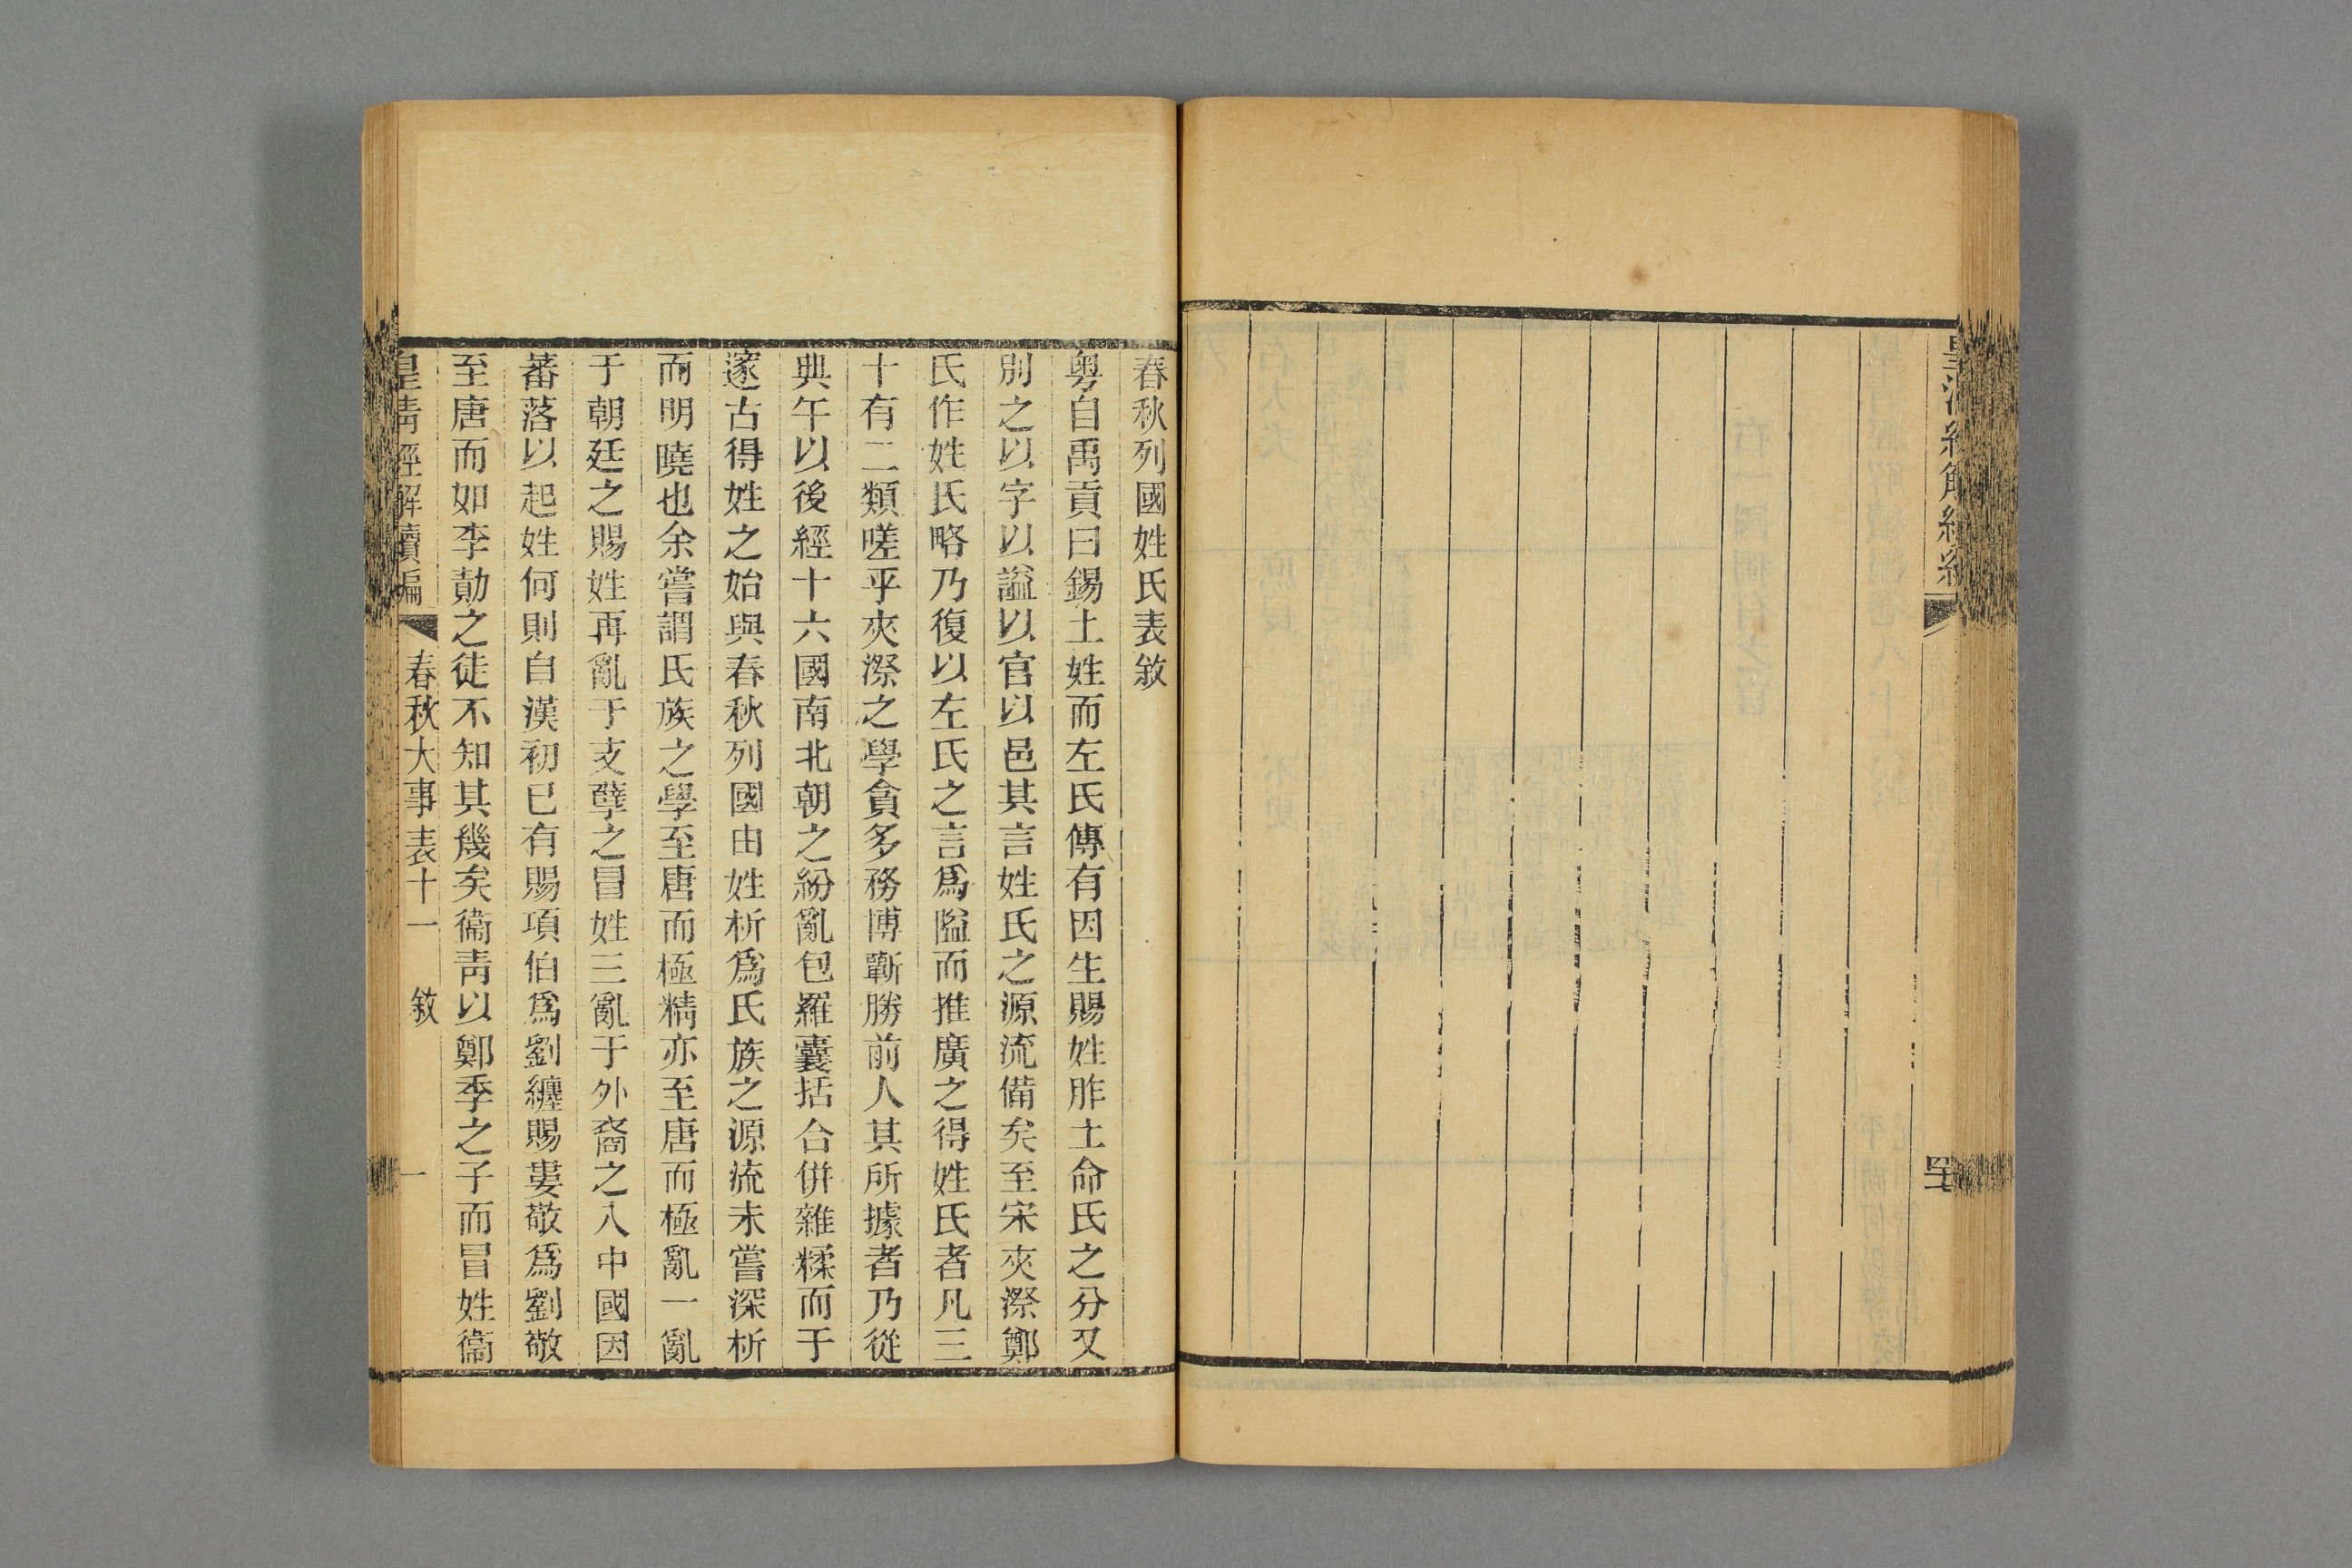 春秋列國姓氏表敘
粵自禹貢曰錫土姓而左氏傳有因生賜姓胙土命氏之分又
別之以字以謚以官以邑其言姓氏之源流備矣至宋夾漈鄭
氏作姓氏略乃復以左氏之言爲隘而推廣之得姓氏者凡三
十有二類嗟乎夾漈之學貪多務博斸勝前人其所據者乃從
典午以後經十六國南北朝之紛亂包羅囊括合併雜糅而于
邃古得姓之始與春秋列國由姓析爲氏族之源流未嘗深析
而明曉也余嘗謂氏族之學至唐而極精亦至唐而極亂一亂
于朝廷之賜姓再亂于支孽之冒姓三亂于外裔之入中國因
蕃落以起姓何則自漢初已有賜項伯爲劉纏賜婁敬爲劉敬
至唐而如李勣之徒不知其幾矣衞青以鄭季之子而冒姓衞
皇清經解續編 春秋大事表十一 敘 一